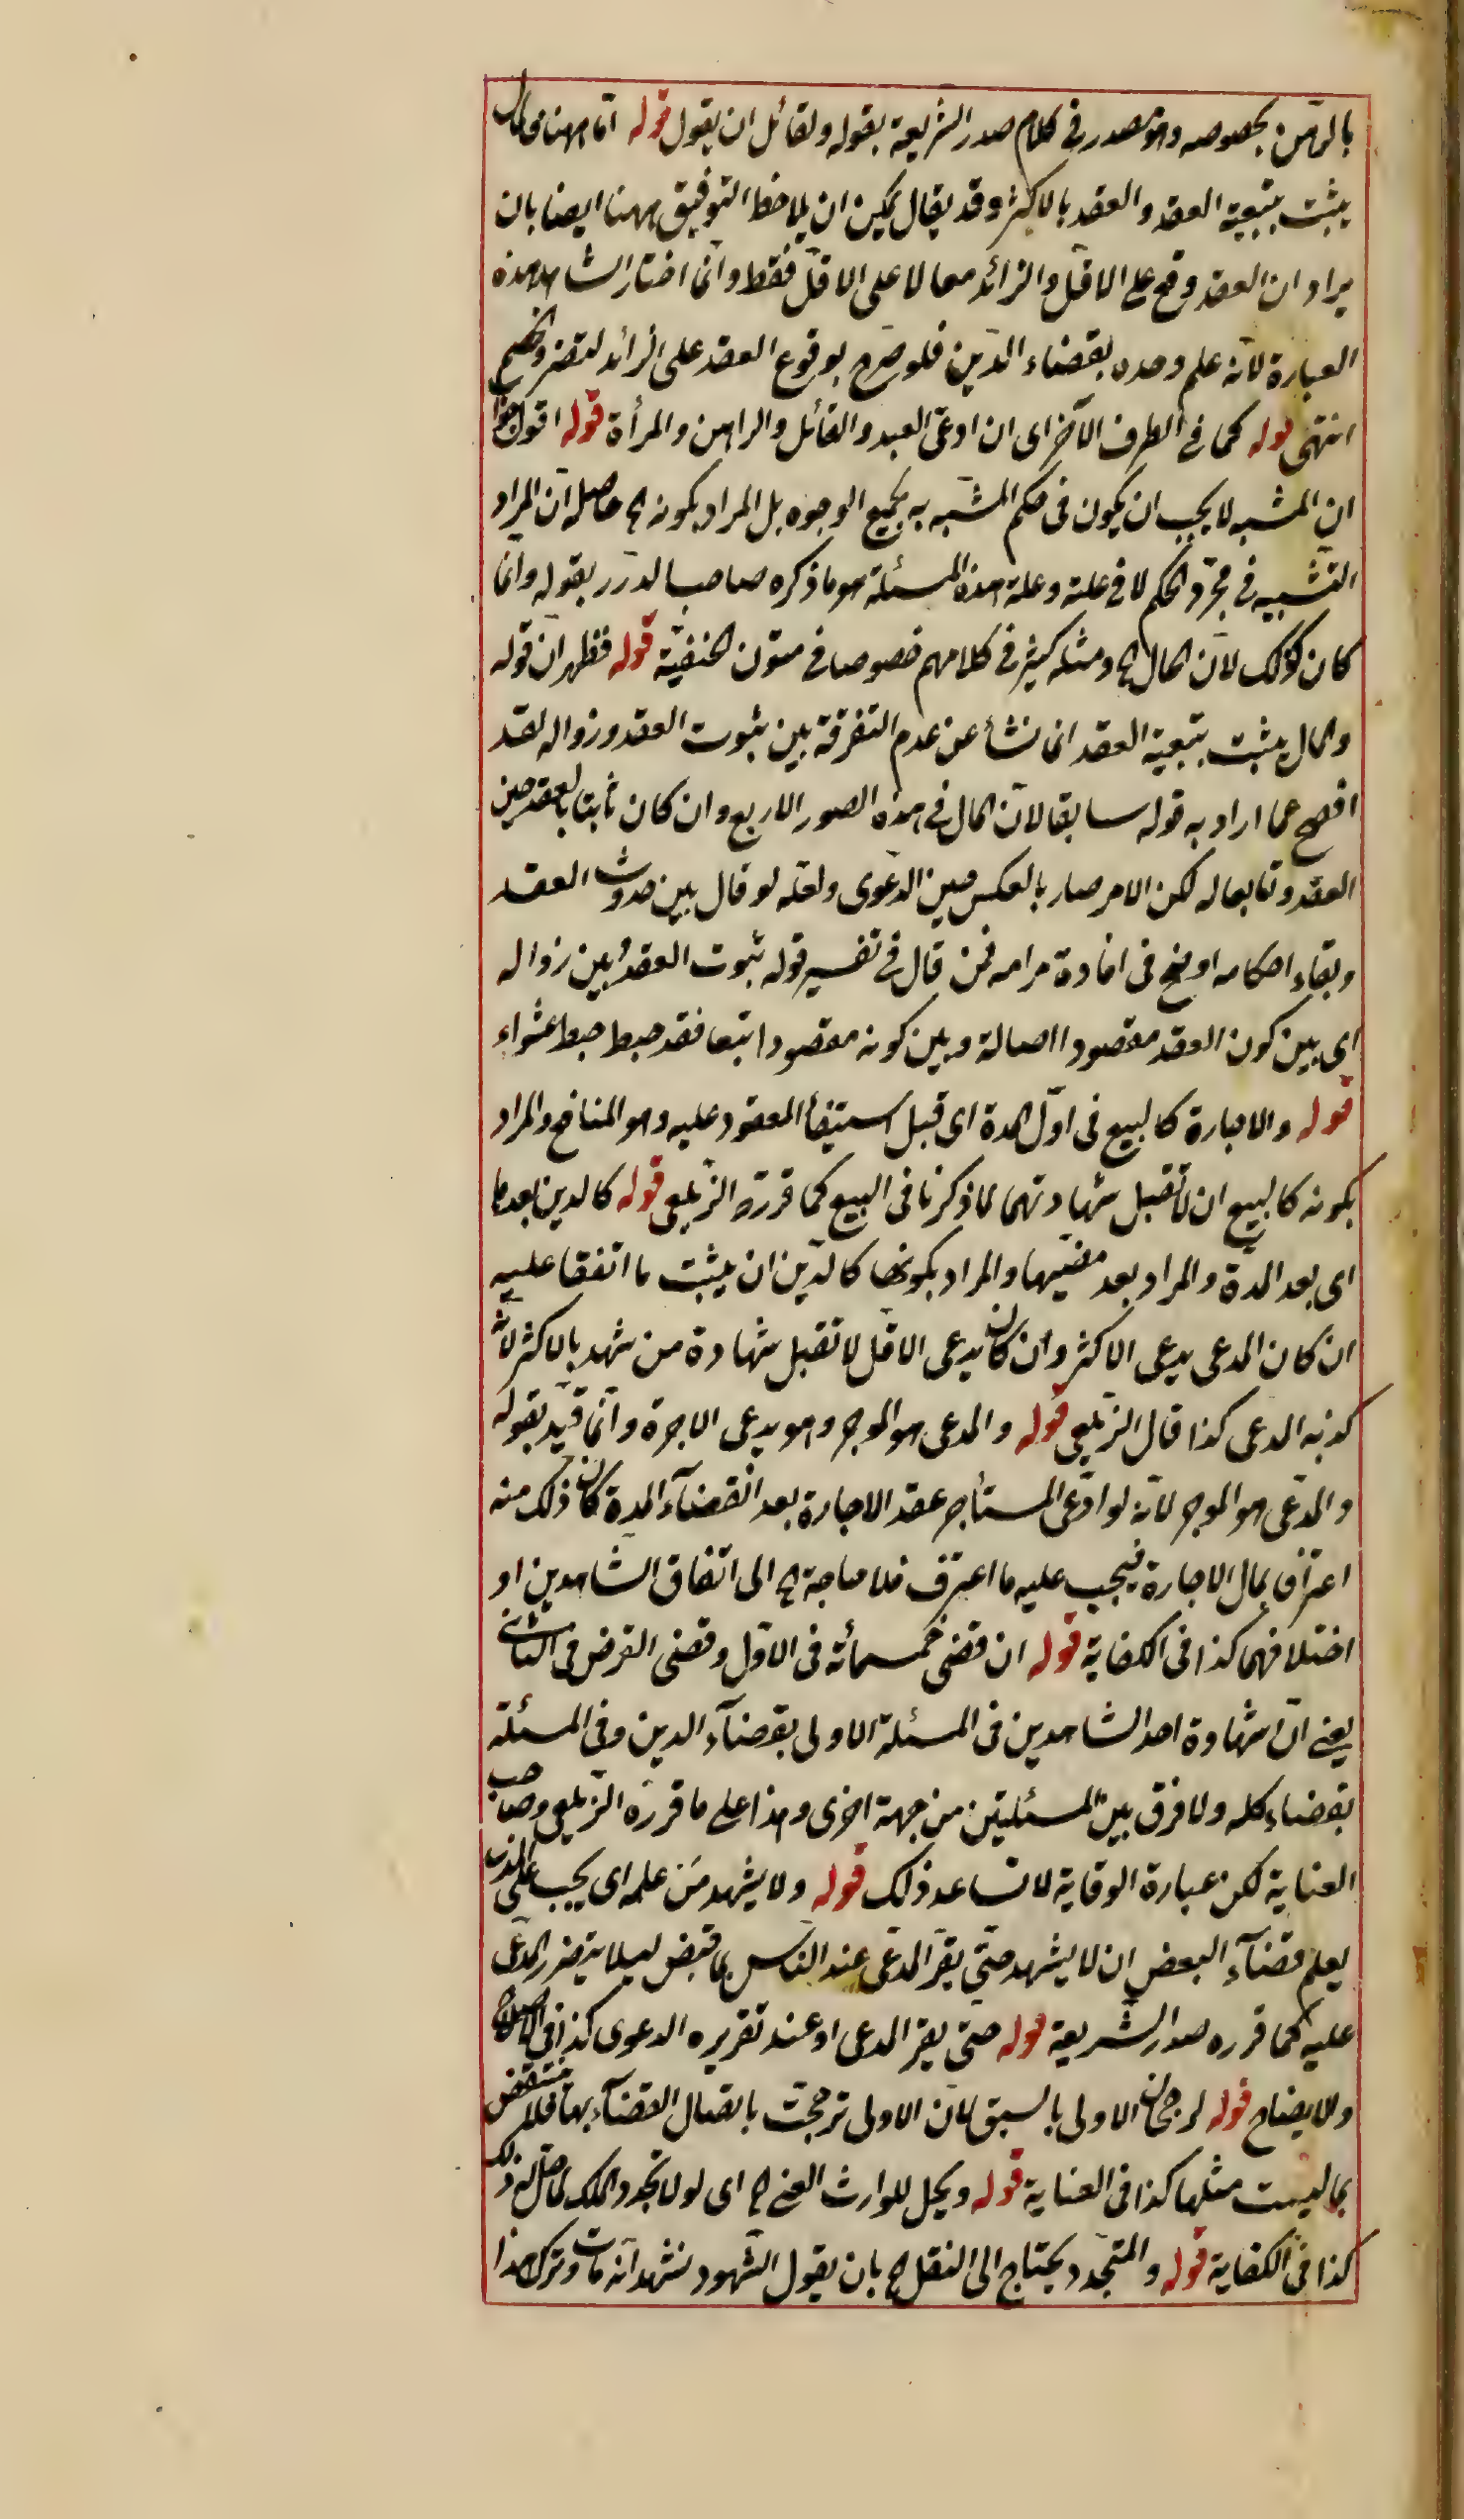 بالرهن بخصوصه وهو مصدر في كلام صدر الشريعة بقوله ولقائل ان يقول قوله اما ههنا فالمال
يثبت بتبعية العقد والعقد بالاكثر وقد يقال يمكن ان يلاحظ التوفيق ههنا ايضا بان
يراد ان العقد وقع على الاقل والزائد معا لا على الاقل فقط وانما اختار الشاهد هذه
العبارة لانه علم وحده بقضاء الدين فلو صرح بوقوع العقد على الزائد لتضرر الخصم
انتهى قوله كما في الطرف الآخر اى ان ادعى العبد والقاتل والراهن والمرأة قوله اقول جوابه
ان المشبه لا يجب ان يكون في حكم المشبه به بجميع الوجوه بل المراد بكونه الخ حاصله ان المراد
التشبيه في مجرد الحكم لا في علته وعلة هذه المسئلة هو ما ذكره صاحب الدرر بقوله وانما
كان كذلك لان المال الخ ومثله كثير في كلامهم خصوصا في متون الحنفية قوله فظهر ان قوله
والمال يثبت بتبعية العقد انما نشأ عن عدم التفرقة بين ثبوت العقد وزواله لقد
افصح عما اراد به قوله سابقا لان المال في هذه الصور الاربع وان كان ثابتا بالعقد حين
العقد وتابعا له لكن الامر صار بالعكس حين الدعوى ولعله لو قال بين حدوث العقد
وبقاء احكامه اوضح في افادة مرامه فمن قال في تفسير قوله ثبوت العقد وبين زواله
اى بين كون العقد مقصودا اصالة وبين كونه مقصودا تبعا فقد خبط خبط عشواء
قوله والاجارة كالبيع في اول المدة اى قبل استيفاء المعقود عليه وهو المنافع والمراد
بكونه كالبيع ان لا تقبل شهادتهما لما ذكرنا في البيع كما قرره الزيلعي قوله كالدين بعدها
اى بعد المدة والمراد بعد مضيها والمراد بكونها كالدين ان يثبت ما اتفقا عليه
ان كان المدعى يدعى الاكثر وان كان يدعى الاقل لا تقبل شهادة من شهد بالاكثر لانه
كذبه المدعى كذا قال الزيلعي قوله والمدعى هو الموجر وهو يدعى الاجرة وانما قيد بقوله
والمدعى هو الموجر لانه لو ادعى المستأجر عقد الاجارة بعد انقضاء المدة كان ذلك منه
اعترافا بمال الاجارة فيجب عليه ما اعترف فلا حاجة الخ الى اتفاق الشاهدين او
اختلافهما كذا في الكفاية قوله ان قضى خمسمائة في الاول وقضى القرض في الثانى
يعنى ان شهادة احد الشاهدين في المسئلة الاولى بقضاء الدين وفي المسئلة
بقضاء كله ولا فرق بين المسئلتين من جهة اخرى وهذا على ما قرره الزيلعي وصاحب
العناية لكن عبارة الوقاية لا تساعد ذلك قوله ولا يشهد من علمه اى يجب على الذى
يعلم قضاء البعض ان لا يشهد حتى يقر المدعى عند الناس بما قبض ليلا يتضرر المدعى
عليه كما قرره صدر الشريعة قوله حتى يقر المدعى او عند تقريره الدعوى كذا في الاصلاح
والايضاح قوله لرجحان الاولى بالسبق لان الاولى ترجحت باتصال القضاء بها فلا تنتقض
بما ليست مثلها كذا في العناية قوله ويحل للوارث الغنى الخ اى لولا تجدد الملك لما حل له ذلك
كذا في الكفاية قوله والمتجدد يحتاج الى النقل الخ بان يقول الشهود نشهد انه مات وترك هذا